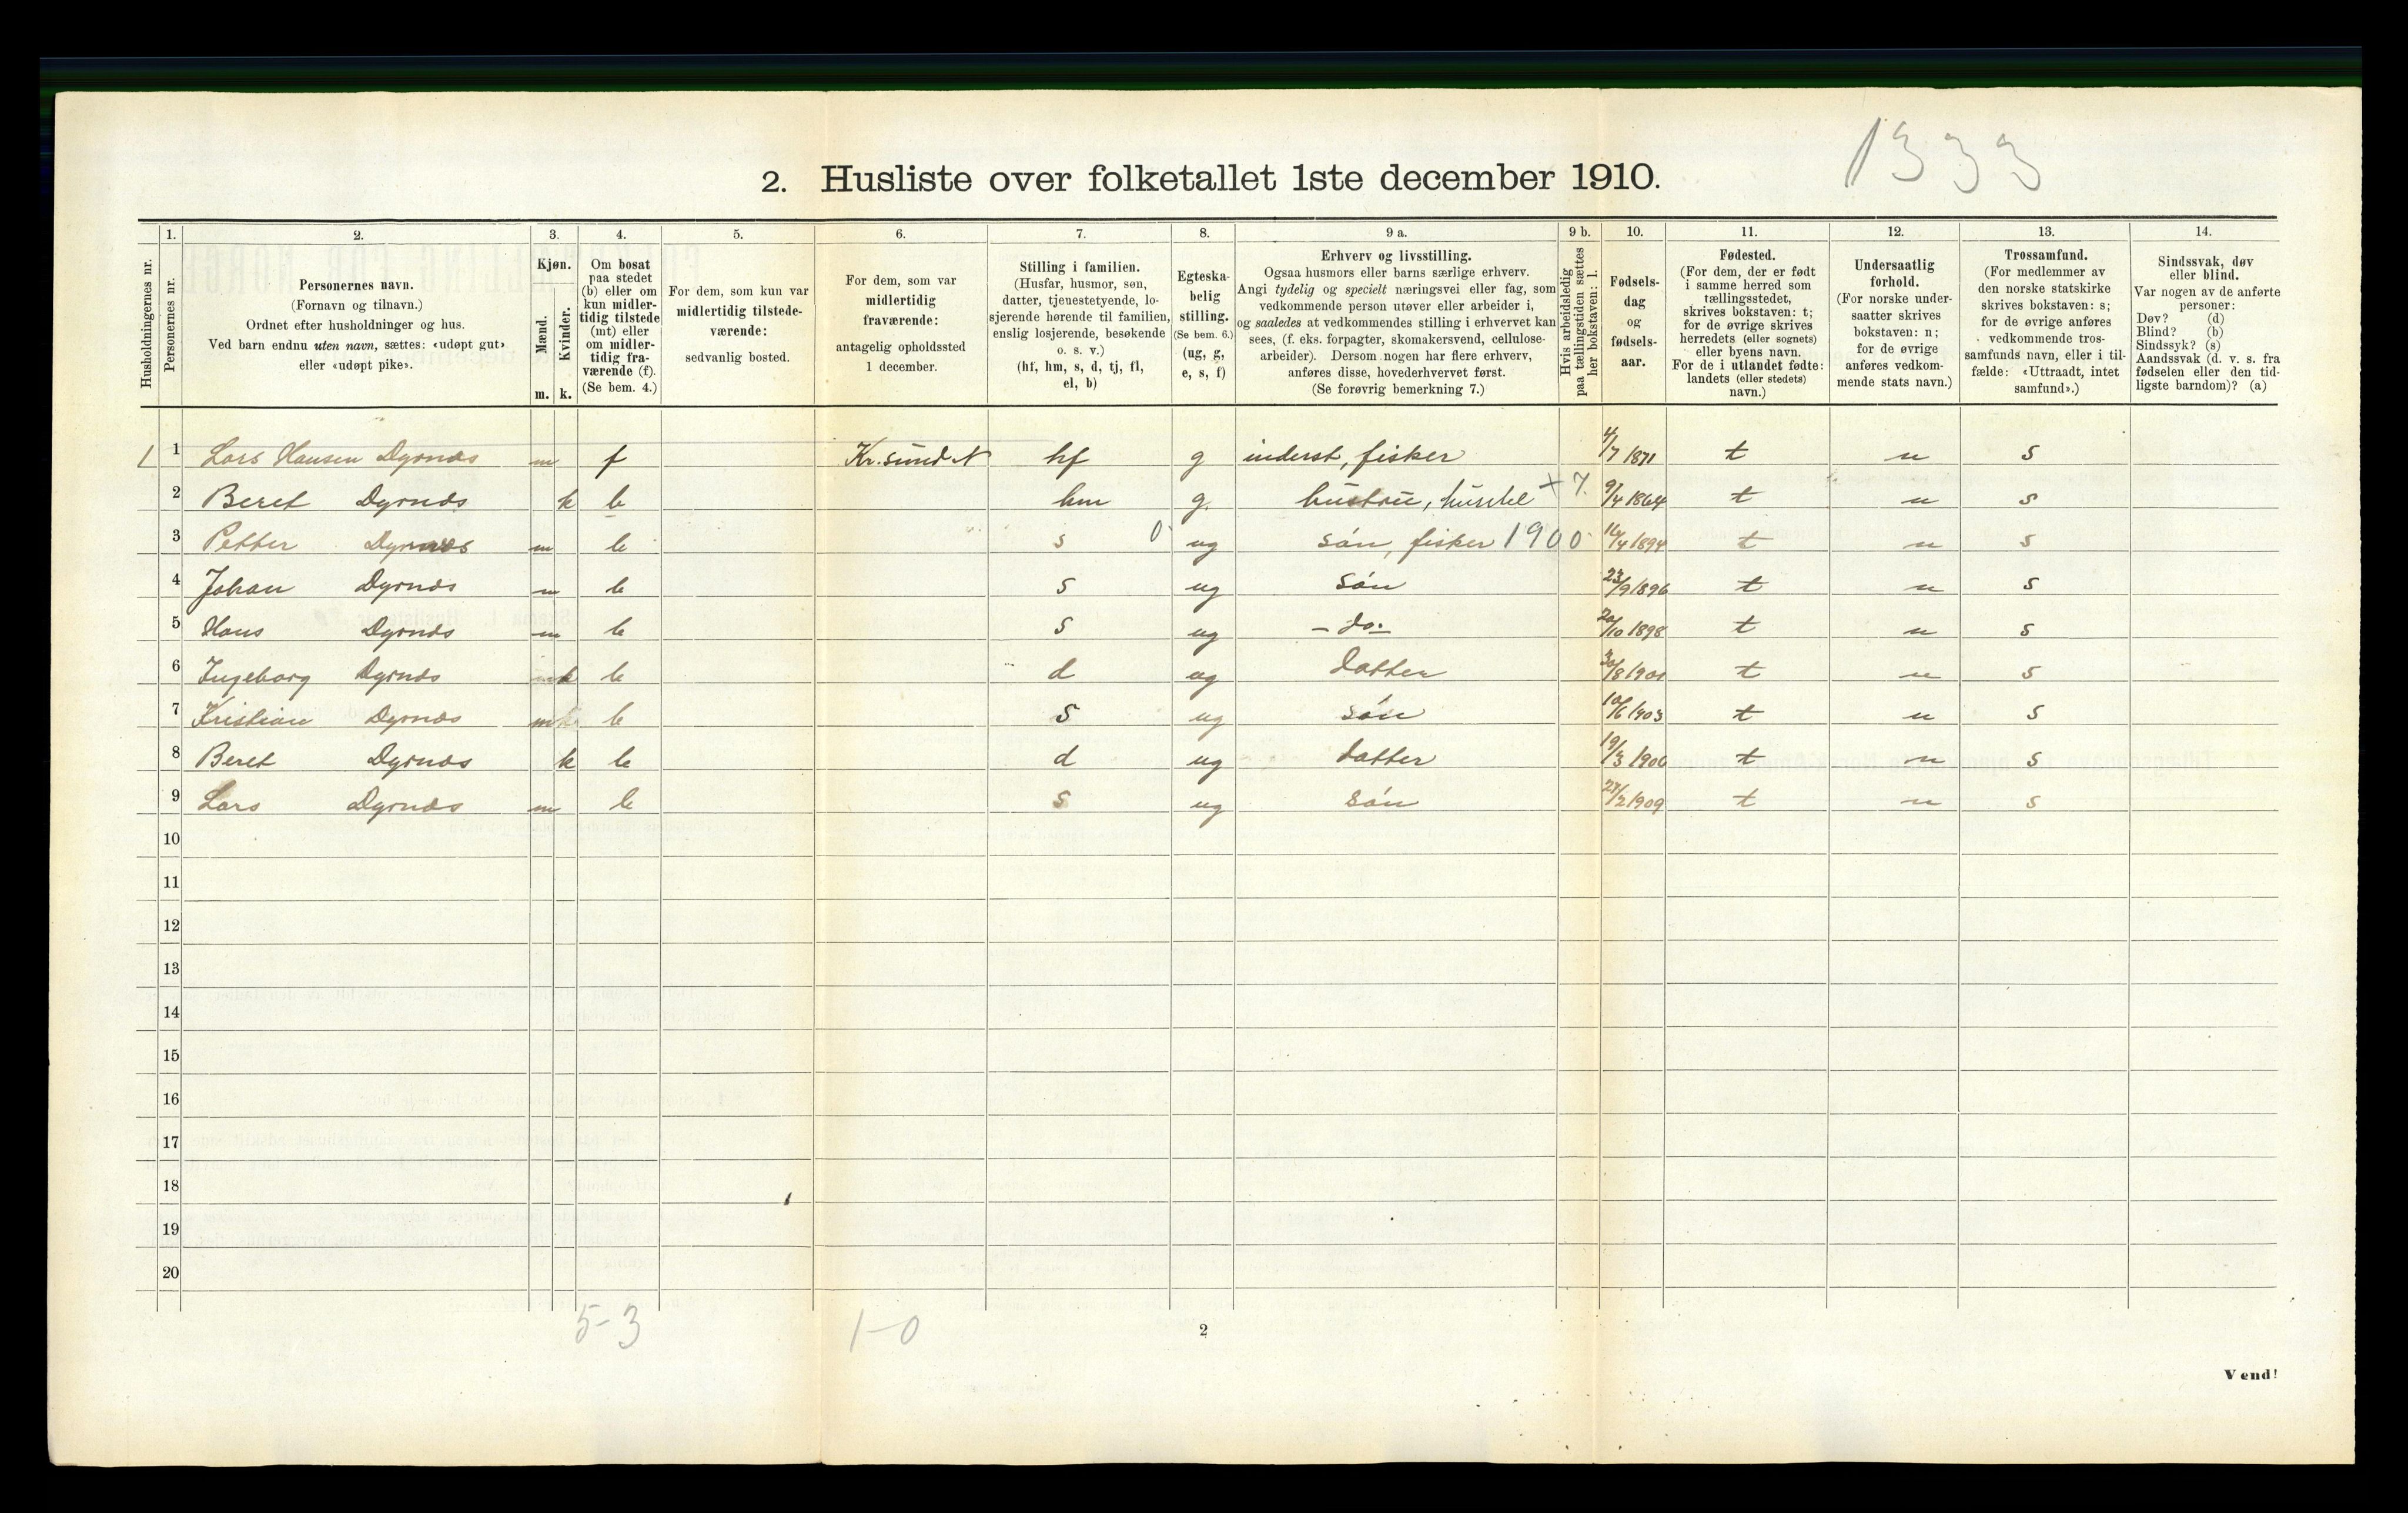 1333
2. Husliste over folketallet 1ste december 1910.
Husholdningernes nr.
1. Personernes nr.
2. Personernes navn.
(Fornavn og tilnavn.)
Ordnet efter husholdninger og hus.
Ved barn endnu uten navn, sættes: «udøpt gut»
eller «udøpt pike».
3. Kjøn.
Mænd. m.
Kvinder. k.
4. Om bosat
paa stedet
(b) eller om
kun midler-
tidig tilstede
(mt) eller
om midler-
tidig fra-
værende (f).
(Se bem. 4.)
5. For dem, som kun var
midlertidig tilstede-
værende:
sedvanlig bosted.
6. For dem, som var
midlertidig
fraværende:
antagelig opholdssted
1 december.
7. Stilling i familien.
(Husfar, husmor, søn,
datter, tjenestetyende, lo-
sjerende hørende til familien,
enslig losjerende, besøkende
o. s. v.)
(hf, hm, s, d, tj, fl,
el, b)
8. Egteska-
belig
stilling.
(Se bem. 6.)
(ug, g,
e, s, f)
9 a. Erhverv og livsstilling.
Ogsaa husmors eller barns særlige erhverv.
Angi tydelig og specielt næringsvei eller fag, som
vedkommende person utøver eller arbeider i,
og saaledes at vedkommendes stilling i erhvervet kan
sees, (f. eks. forpagter, skomakersvend, cellulose-
arbeider). Dersom nogen har flere erhverv,
anføres disse, hovederhvervet først.
(Se forøvrig bemerkning 7.)
9 b. Hvis arbeidsledig
paa tællingstiden sættes
her bokstaven: l.
10. Fødsels-
dag
og
fødsels-
aar.
11. Fødested.
(For dem, der er født
i samme herred som
tællingsstedet,
skrives bokstaven: t;
for de øvrige skrives
herredets (eller sognets)
eller byens navn.
For de i utlandet fødte:
landets (eller stedets)
navn.)
12. Undersaatlig
forhold.
(For norske under-
saatter skrives
bokstaven: n;
for de øvrige
anføres vedkom-
mende stats navn.)
13. Trossamfund.
(For medlemmer av
den norske statskirke
skrives bokstaven: s;
for de øvrige anføres
vedkommende tros-
samfunds navn, eller i til-
fælde: «Uttraadt, intet
samfund».)
14. Sindssvak, døv
eller blind.
Var nogen av de anførte
personer:
Døv? (d)
Blind? (b)
Sindssyk? (s)
Aandssvak (d. v. s. fra
fødselen eller den tid-
ligste barndom)? (a)
1 1 Lars Hansen Dyrnæs m f Kr.sund N hf g inderst, fisker 4/7 1871 t n s
2 Beret Dyrnæs k b hm g. hustru, husstel + 7. 9/4 1864 t n s
3 Petter Dyrnæs m b s 0 ug søn, fisker 1900 16/4 1894 t n s
4 Johan Dyrnæs m b s ug søn 23/9 1896 t n s
5 Hans Dyrnæs m b s ug - do.- 20/10 1898 t n s
6 Ingeborg Dyrnæs k b d ug datter 30/8 1901 t n s
7 Kristian Dyrnæs m b s ug søn 10/6 1903 t n s
8 Beret Dyrnæs k b d ug datter 19/3 1906 t n s
9 Lars Dyrnæs m b s ug søn 27/2 1909 t n s
10
11
12
13
14
15
16
17
18
19
20
5-3 1-0
2
Vend!